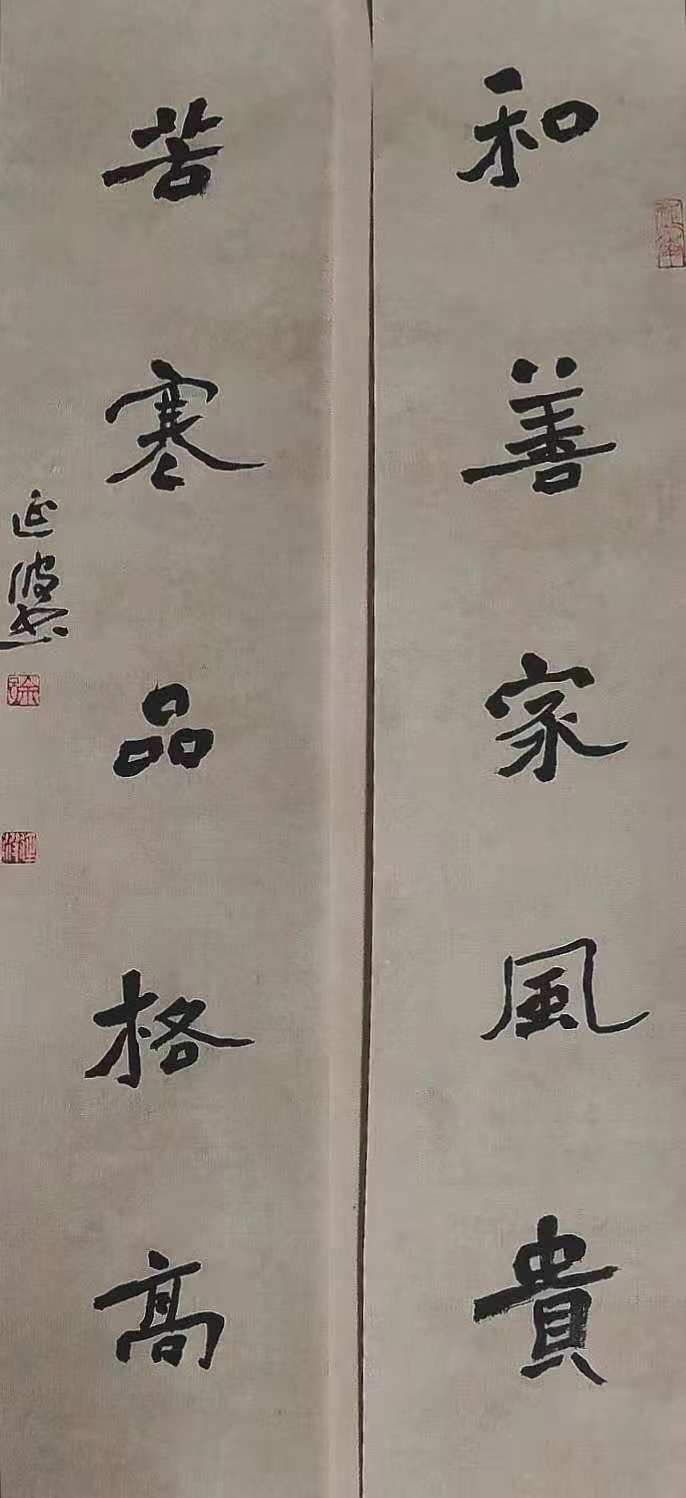 和善家風貴
苦寒品格高
延波書